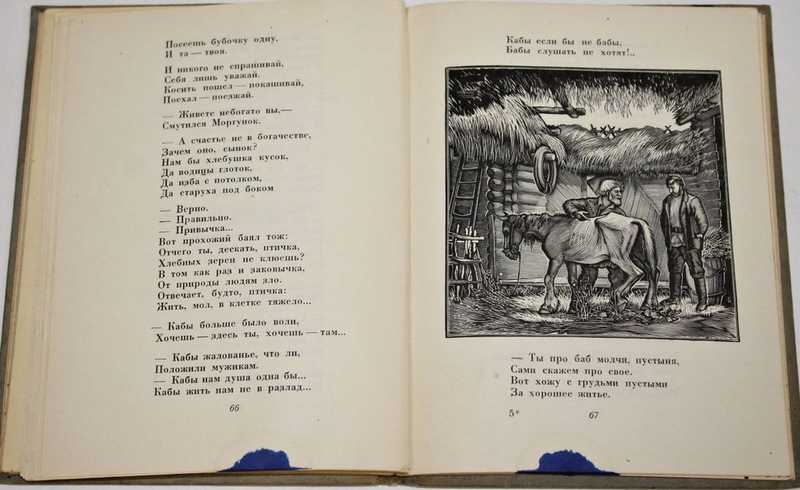 Посеешь бубочку одну,
И та — твоя.
И никого не спрашивай,
Себя лишь уважай.
Косить пошел — покашивай,
Поехал — поезжай.
— Живете небогато вы,—
Смутился Моргунок.
— А счастье не в богачестве,
Зачем оно, сынок?
Нам бы хлебушка кусок,
Да водицы глоток,
Да изба с потолком,
Да старуха под боком
— Верно.
— Правильно.
— Привычка...
Вот прохожий баял тож:
Отчего ты, дескать, птичка,
Хлебных зерен не клюешь?
В том как раз и заковычка,
От природы людям зло.
Отвечает, будто, птичка:
Жить, мол, в клетке тяжело...
— Кабы больше было воли,
Хочешь — здесь ты, хочешь — там...
— Кабы жалованье, что ли,
Положили мужикам.
— Кабы нам душа одна бы...
Кабы жить нам не в разлад...
66
Кабы если бы не бабы,
Бабы слушать не хотят!..
— Ты про баб молчи, пустыня,
Сами скажем про свое.
Вот хожу с грудьми пустыми
За хорошее житье.
5* 67